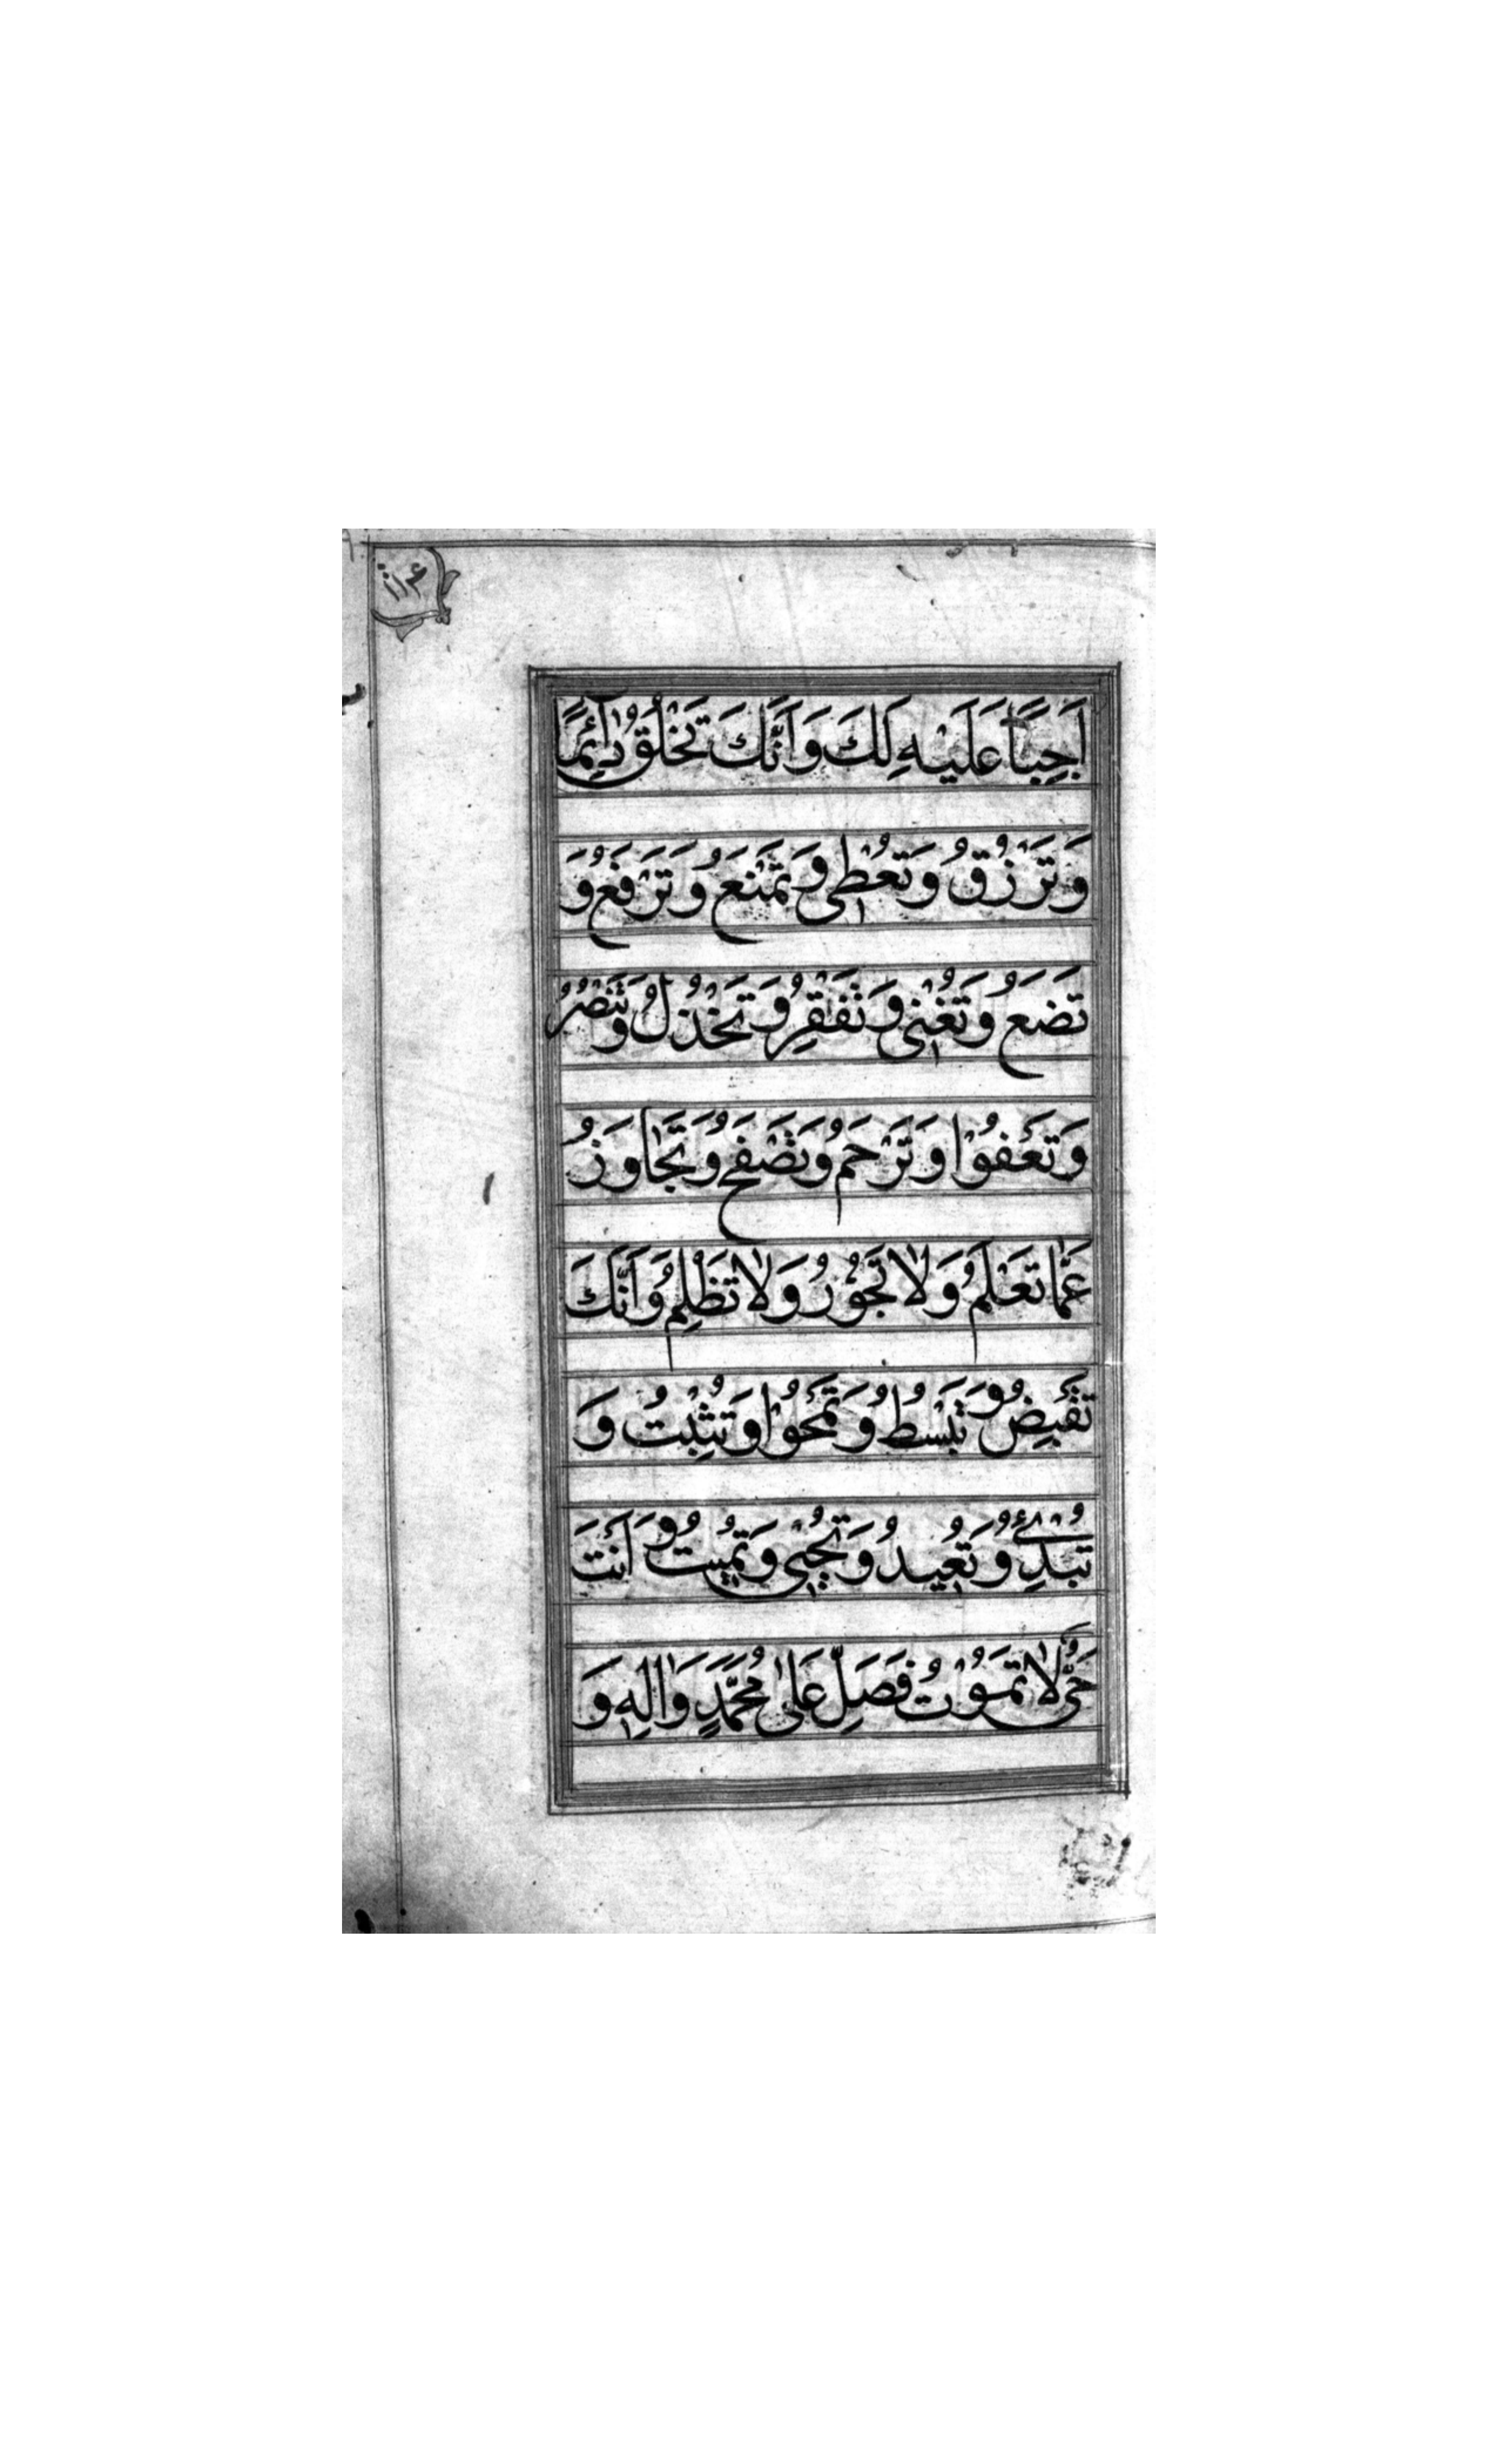 اَجِبًا عَلَيْهِ لَكَ وَاَنَّكَ تَخْلُقُ دٰآئِمًا
وَتَرْزُقُ وَتُعْطِي وَتَمْنَعُ وَتَرْفَعُ وَ
تَضَعُ وَتُغْنِي وَتُفْقِرُ وَتَخْذُلُ وَتَنْصُرُ
وَتَعْفُوْا وَتَرْحَمُ وَتَصْفَحُ وَتَجٰاوَزُ
عَمّٰا تَعْلَمُ وَلٰا تَجُوْرُ وَلٰا تَظْلِمُ وَاَنَّكَ
تَقْبِضُ وَتَبْسُطُ وَتَمْحُوْا وَتُثْبِتُ وَ
تُبْدِئُ وَتُعِيدُ وَتُحْيِي وَتُمِيتُ وَاَنْتَ
حَيٌّ لٰا تَمُوْتُ فَصَلِّ عَلىٰ مُحَمَّدٍ وَاٰلِهِ وَ